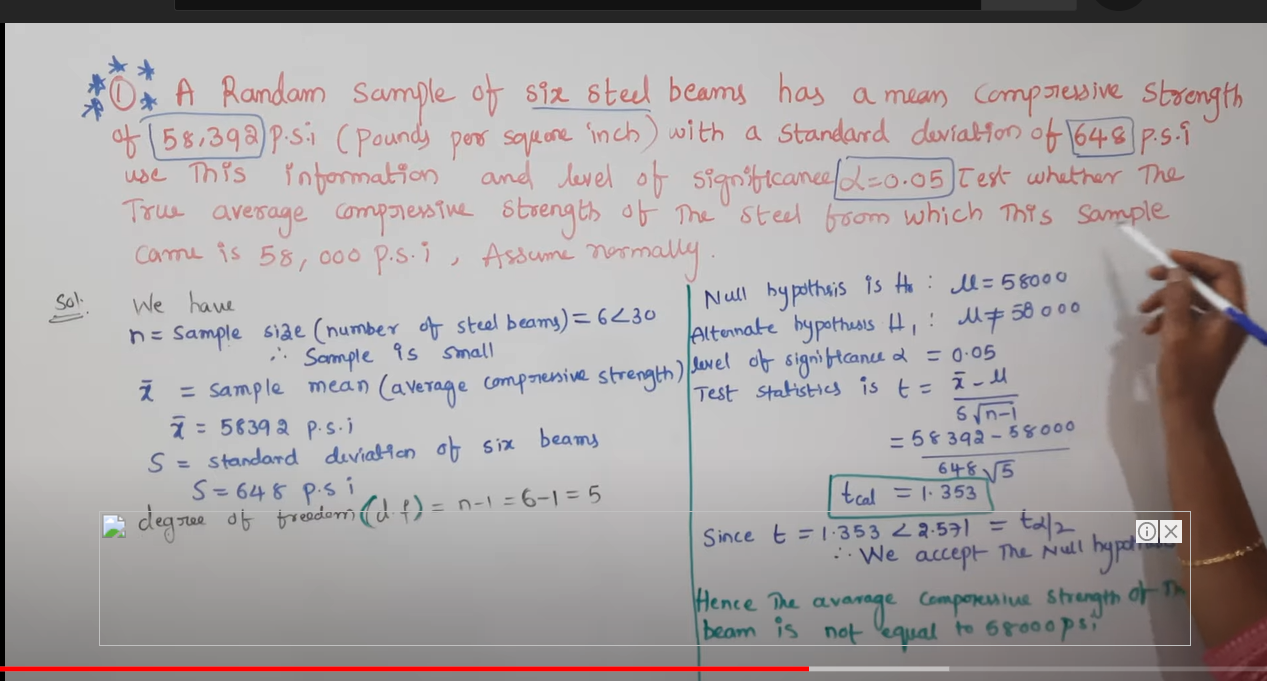 ① A Random sample of six steel beams has a mean compressive strength
of 58,392 P.s.i (Pounds per square inch) with a standard deviation of 648 P.s.i
use This information and level of significance α=0.05 Test whether The
True average compressive strength of The steel from which This sample
came is 58,000 P.s.i , Assume normally.
Sol:
We have
n = sample size (number of steel beams) = 6<30
∴ Sample is small
x̄ = sample mean (average compressive strength)
x̄ = 58392 p.s.i
S = standard deviation of six beams
S = 648 p.s i
degree of freedom (d.f) = n-1 = 6-1 = 5
Null hypothsis is H₀ : μ = 58000
Alternate hypothesis H₁ : μ ≠ 58000
level of significance α = 0.05
Test statistics is t = x̄ - μ
S√n-1
= 58392 - 58000
648√5
tcal = 1.353
Since t = 1.353 < 2.571 = tα/2
∴ We accept The Null
Hence The avarage compressive strength of
beam is not equal to 58000 psi